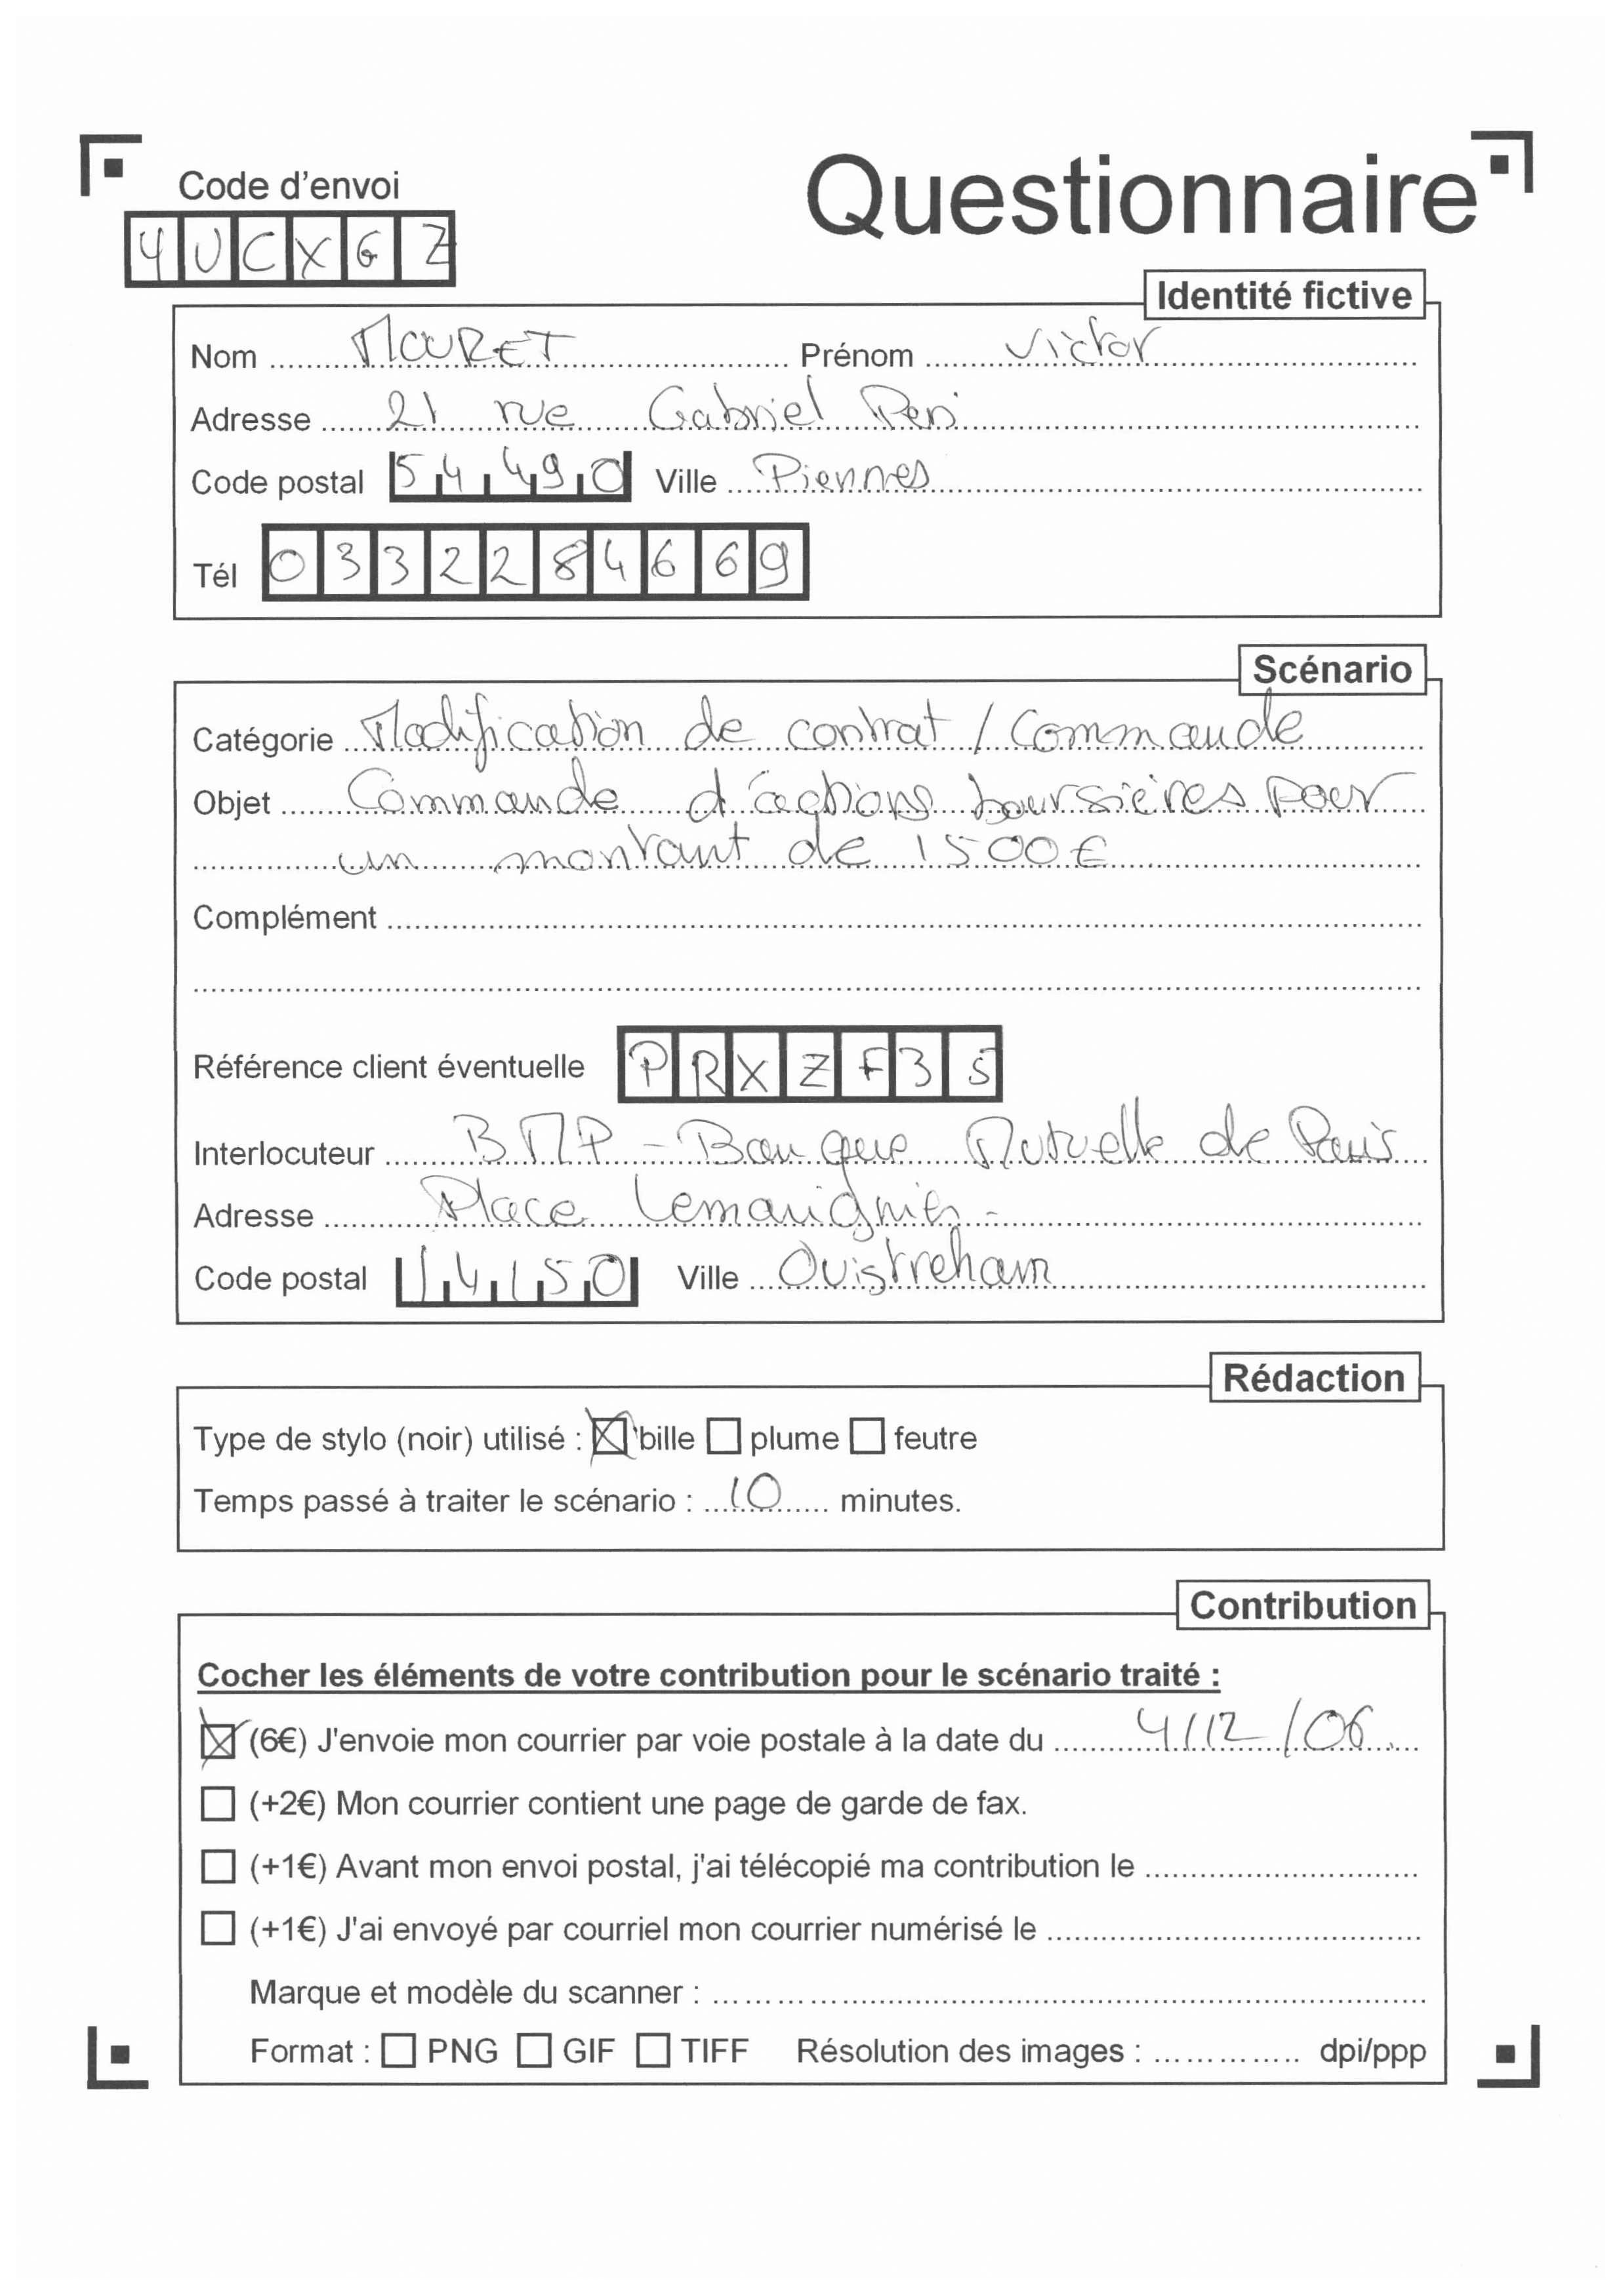 Code d'envoi
Questionnaire
4UCXGZ
Identité fictive
Nom MOURET Prénom Victor
Adresse 21 rue Gabriel Peri
Code postal 54490 Ville Piennes
Tél 0332284669
Scénario
Catégorie Modification de contrat / Commande
Objet Commande d'actions boursières pour
un montant de 1500€
Complément
Référence client éventuelle PRXZF35
Interlocuteur BMP - Banque Mutuelle de Paris
Adresse Place Lemarignier
Code postal 14150 Ville Ouistreham
Rédaction
Type de stylo (noir) utilisé : bille plume feutre
Temps passé à traiter le scénario : 10 minutes.
Contribution
Cocher les éléments de votre contribution pour le scénario traité :
(6€) J'envoie mon courrier par voie postale à la date du 4/12/06
(+2€) Mon courrier contient une page de garde de fax.
(+1€) Avant mon envoi postal, j'ai télécopié ma contribution le
(+1€) J'ai envoyé par courriel mon courrier numérisé le
Marque et modèle du scanner :
Format : PNG GIF TIFF Résolution des images : dpi/ppp